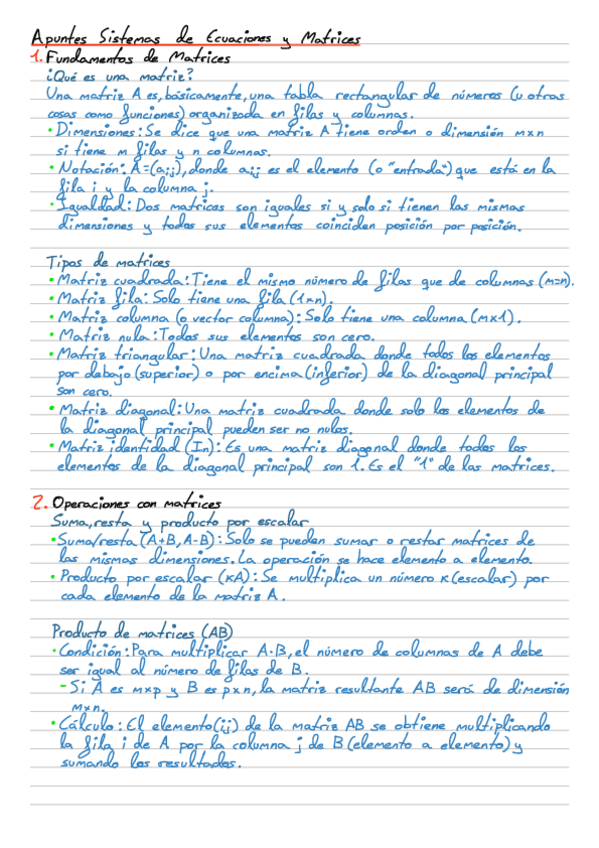 Apuntes Sistemas de Ecuaciones y Matrices
1. Fundamentos de Matrices
¿Qué es una matriz?
Una matriz A es, básicamente, una tabla rectangular de números (u otras
cosas como funciones) organizada en filas y columnas.
• Dimensiones: Se dice que una matriz A tiene orden o dimensión m×n
si tiene m filas y n columnas.
• Notación: A=(aij), donde aij es el elemento (o "entrada") que está en la
fila i y la columna j.
• Igualdad: Dos matrices son iguales si y solo si tienen las mismas
dimensiones y todos sus elementos coinciden posición por posición.
Tipos de matrices
• Matriz cuadrada: Tiene el mismo número de filas que de columnas (m=n).
• Matriz fila: Solo tiene una fila (1×n).
• Matriz columna (o vector columna): Solo tiene una columna (m×1).
• Matriz nula: Todos sus elementos son cero.
• Matriz triangular: Una matriz cuadrada donde todos los elementos
por debajo (superior) o por encima (inferior) de la diagonal principal
son cero.
• Matriz diagonal: Una matriz cuadrada donde solo los elementos de
la diagonal principal pueden ser no nulos.
• Matriz identidad (In): Es una matriz diagonal donde todos los
elementos de la diagonal principal son 1. Es el "1" de las matrices.
2. Operaciones con matrices
Suma, resta y producto por escalar
• Suma/resta (A+B, A-B): Solo se pueden sumar o restar matrices de
las mismas dimensiones. La operación se hace elemento a elemento.
• Producto por escalar (KA): Se multiplica un número K (escalar) por
cada elemento de la matriz A.
Producto de matrices (AB)
• Condición: Para multiplicar A·B, el número de columnas de A debe
ser igual al número de filas de B.
- Si A es m×p y B es p×n, la matriz resultante AB será de dimensión
m×n.
• Cálculo: El elemento (ij) de la matriz AB se obtiene multiplicando
la fila i de A por la columna j de B (elemento a elemento) y
sumando los resultados.